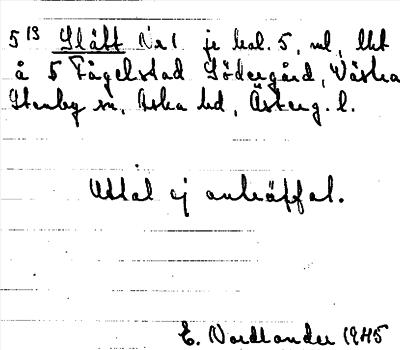 5¹³ Slått Nr 1 je bal. 5, ml, lht
å 5 Fågelstad Södergård, Västra
Stenby sn, Aska hd, Österg. l.
Uttal ej anträffat.
E. Nordlander 1945